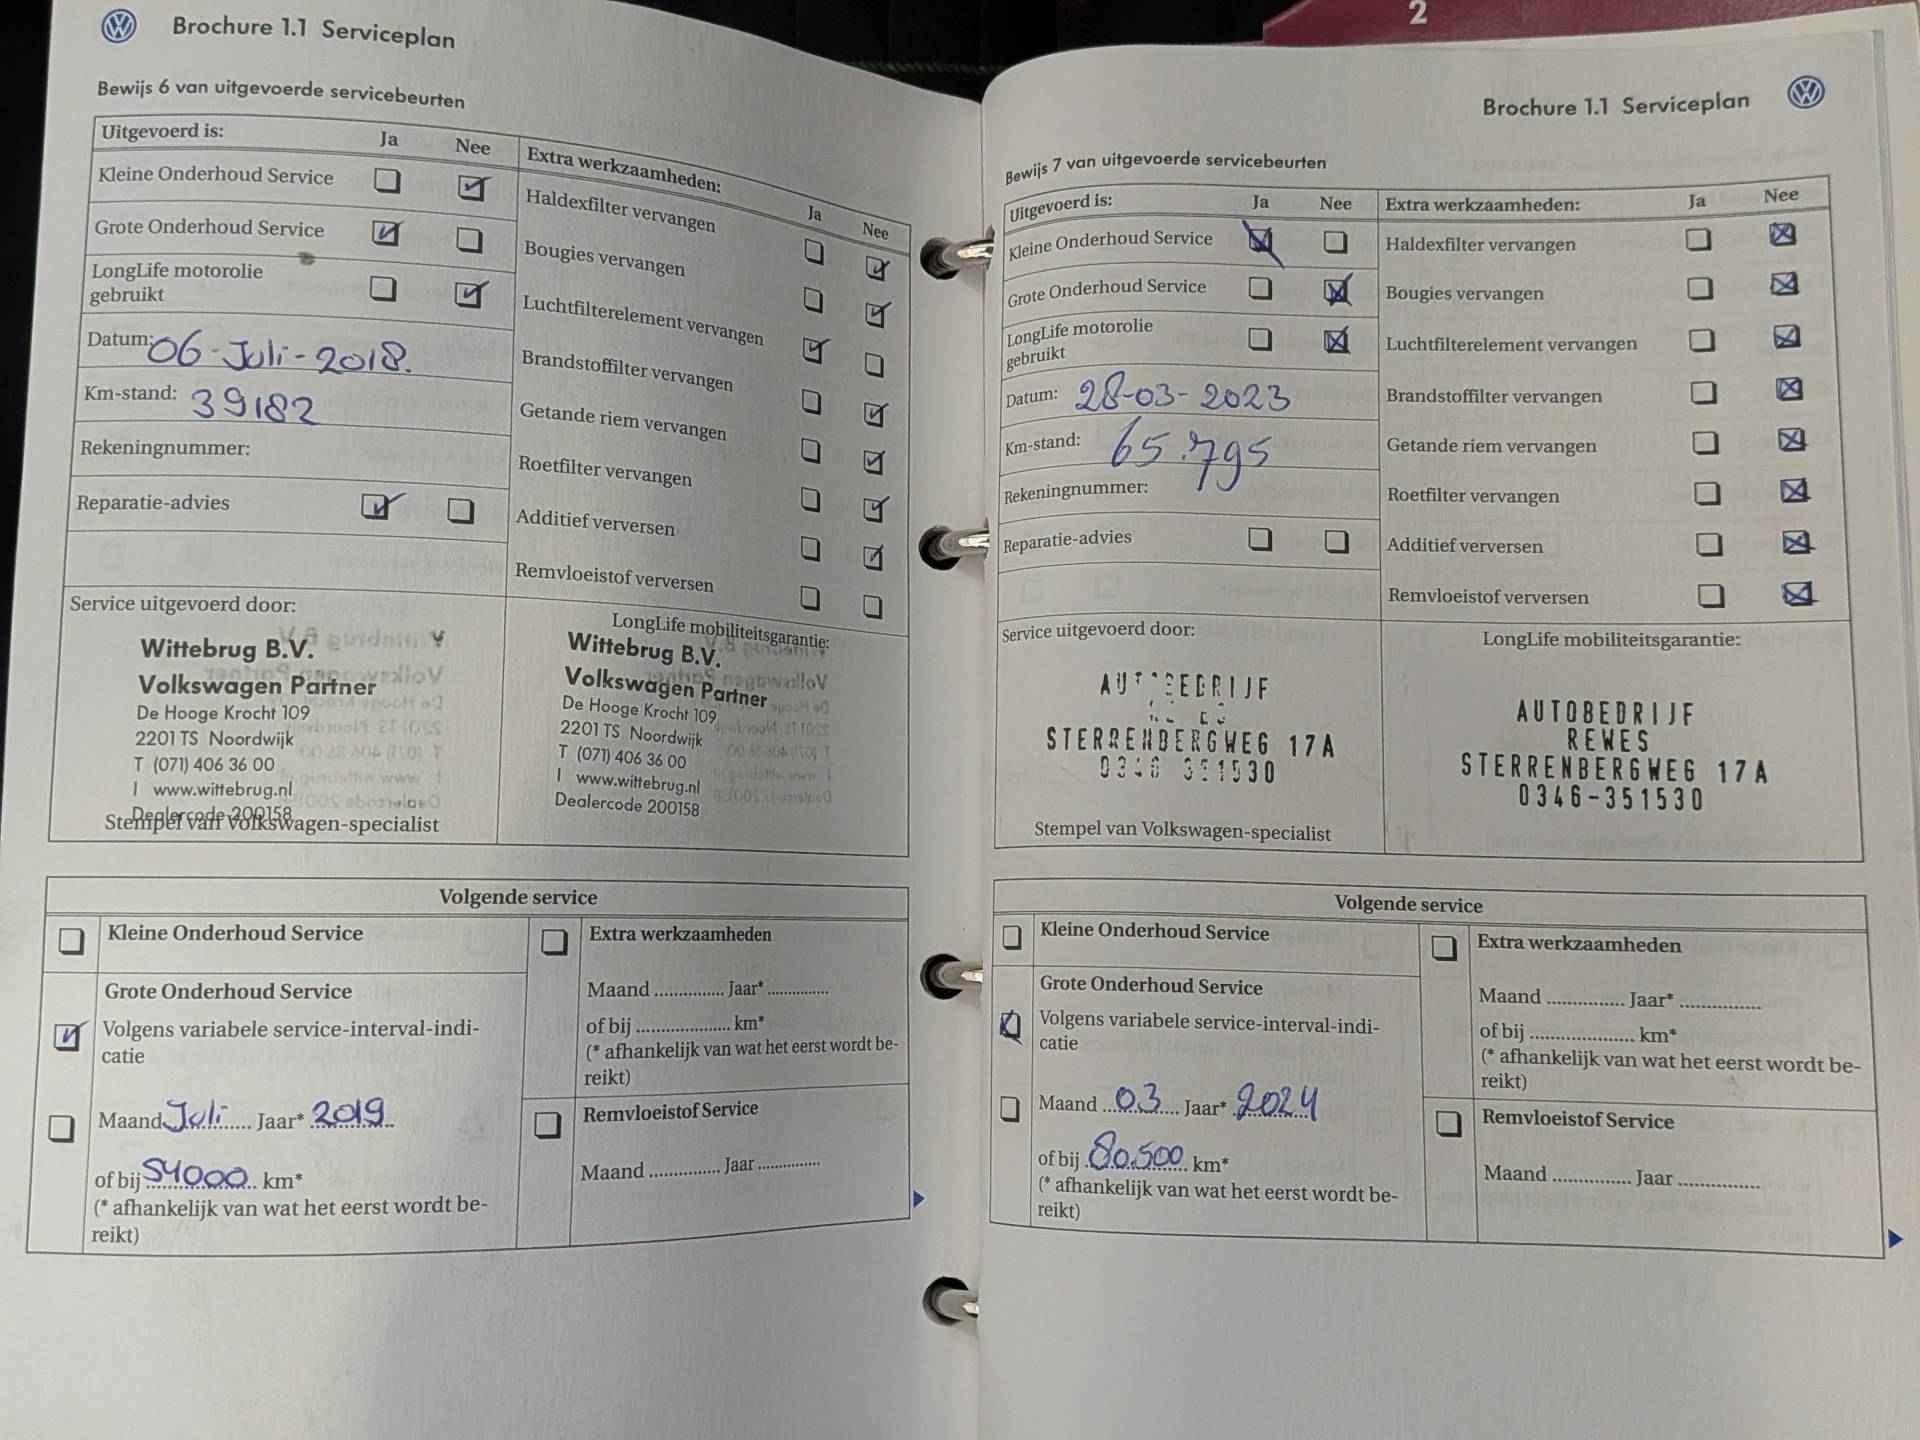 2
Brochure 1.1 Serviceplan
Bewijs 6 van uitgevoerde servicebeurten
Uitgevoerd is: Ja Nee
Kleine Onderhoud Service
Grote Onderhoud Service
LongLife motorolie
gebruikt
Datum: 06-Juli-2018.
Km-stand: 39182
Rekeningnummer:
Reparatie-advies
Extra werkzaamheden: Ja Nee
Haldexfilter vervangen
Bougies vervangen
Luchtfilterelement vervangen
Brandstoffilter vervangen
Getande riem vervangen
Roetfilter vervangen
Additief verversen
Remvloeistof verversen
Service uitgevoerd door:
Wittebrug B.V.
Volkswagen Partner
De Hooge Krocht 109
2201 TS Noordwijk
T (071) 406 36 00
I www.wittebrug.nl
Dealercode 200158
Stempel van Volkswagen-specialist
LongLife mobiliteitsgarantie:
Wittebrug B.V.
Volkswagen Partner
De Hooge Krocht 109
2201 TS Noordwijk
T (071) 406 36 00
I www.wittebrug.nl
Dealercode 200158
Volgende service
Kleine Onderhoud Service
Grote Onderhoud Service
Volgens variabele service-interval-indi-
catie
Maand Juli Jaar* 2019
of bij 54000 km*
(* afhankelijk van wat het eerst wordt be-
reikt)
Extra werkzaamheden
Maand .............. Jaar* .............
of bij ................... km*
(* afhankelijk van wat het eerst wordt be-
reikt)
Remvloeistof Service
Maand .............. Jaar .............
Brochure 1.1 Serviceplan
Bewijs 7 van uitgevoerde servicebeurten
Uitgevoerd is: Ja Nee
Kleine Onderhoud Service
Grote Onderhoud Service
LongLife motorolie
gebruikt
Datum: 28-03-2023
Km-stand: 65.795
Rekeningnummer:
Reparatie-advies
Extra werkzaamheden: Ja Nee
Haldexfilter vervangen
Bougies vervangen
Luchtfilterelement vervangen
Brandstoffilter vervangen
Getande riem vervangen
Roetfilter vervangen
Additief verversen
Remvloeistof verversen
Service uitgevoerd door:
AUTOBEDRIJF
STERRENBERGWEG 17A
0346 351530
Stempel van Volkswagen-specialist
LongLife mobiliteitsgarantie:
AUTOBEDRIJF
REWES
STERRENBERGWEG 17A
0346-351530
Volgende service
Kleine Onderhoud Service
Grote Onderhoud Service
Volgens variabele service-interval-indi-
catie
Maand 03 Jaar* 2024
of bij 80.500 km*
(* afhankelijk van wat het eerst wordt be-
reikt)
Extra werkzaamheden
Maand ............... Jaar* ...............
of bij .................... km*
(* afhankelijk van wat het eerst wordt be-
reikt)
Remvloeistof Service
Maand ............... Jaar ...............